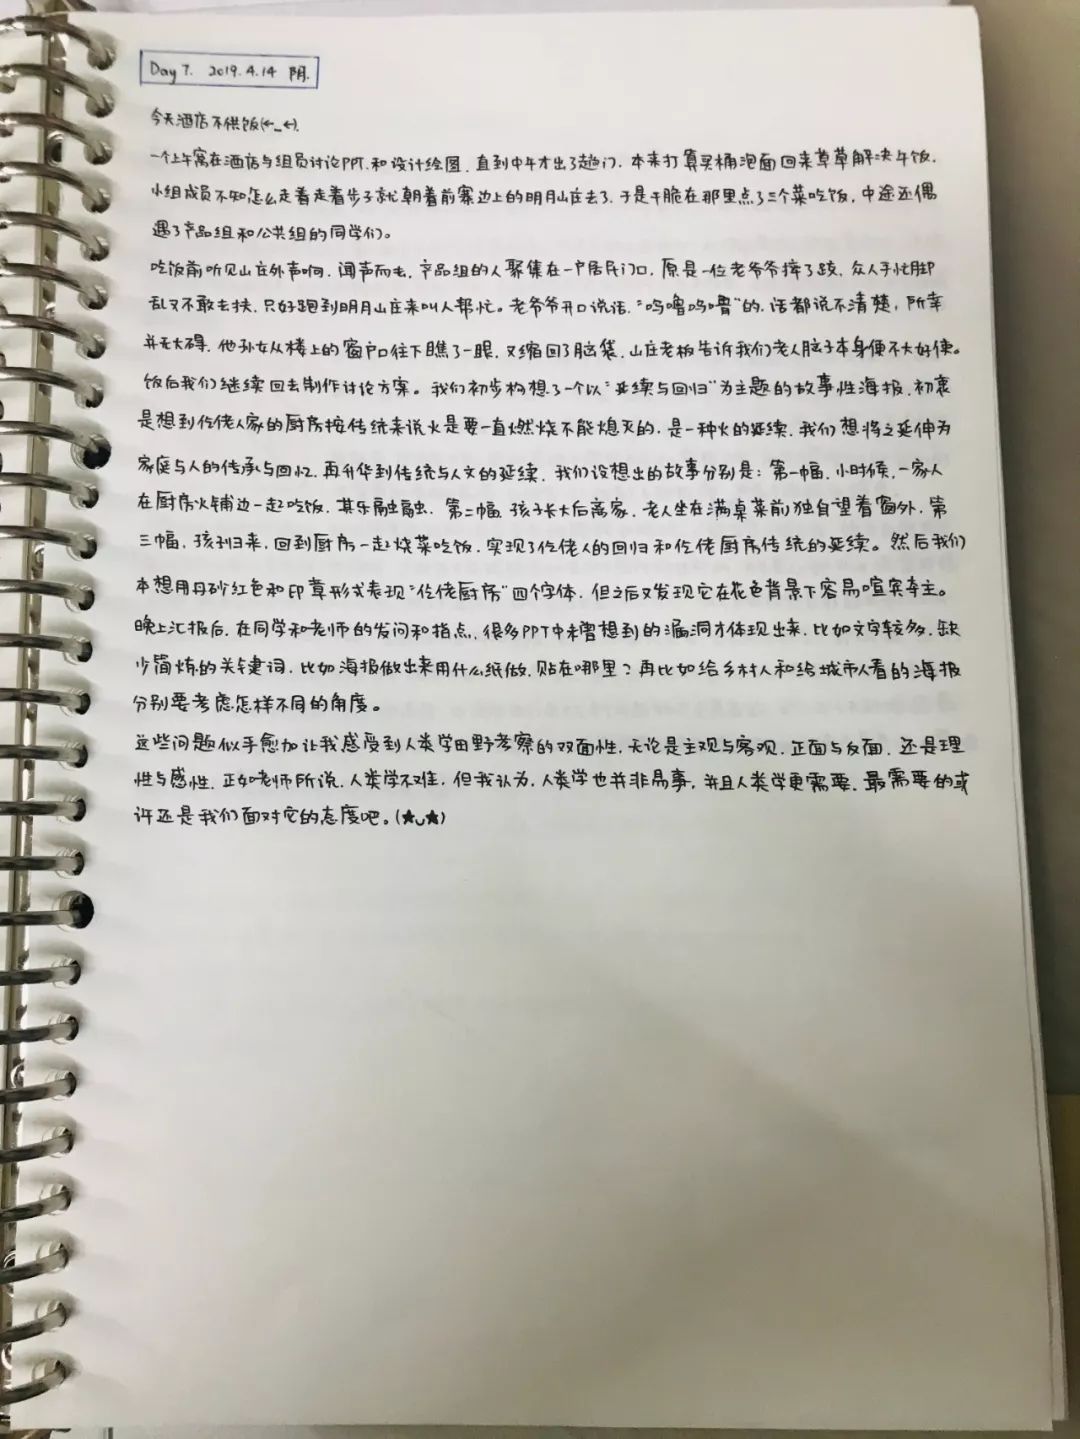 Day 7. 2019.4.14 阴.
今天酒店不供饭(←_←).
一个上午窝在酒店与组员讨论PPT.和设计绘图.直到中午才出了趟门.本来打算买桶泡面回来草草解决午饭.
小组成员不知怎么走着走着步子就朝着前寨边上的明月山庄去了.于是干脆在那里点了三个菜吃饭,中途还偶
遇了产品组和公共组的同学们。
吃饭前听见山庄外声响.闻声而去,产品组的人聚集在一户居民门口,原是一位老爷爷摔了跤,众人手忙脚
乱又不敢去扶.只好跑到明月山庄来叫人帮忙。老爷爷开口说话."呜噜呜噜"的.话都说不清楚,所幸
并无大碍.他孙女从楼上的窗户口往下瞧了一眼.又缩回了脑袋.山庄老板告诉我们老人脑子本身便不大好使。
饭后我们继续回去制作讨论方案。我们初步构想了一个以"延续与回归"为主题的故事性海报.初衷
是想到仡佬人家的厨房按传统来说火是要一直燃烧不能熄灭的.是一种火的延续.我们想将之延伸为
家庭与人的传承与回忆.再升华到传统与人文的延续.我们设想出的故事分别是:第一幅.小时候.一家人
在厨房火铺边一起吃饭.其乐融融.第二幅.孩子长大后离家.老人坐在满桌菜前独自望着窗外.第
三幅.孩子归来,回到厨房一起烧菜吃饭.实现了仡佬人的回归和仡佬厨房传统的延续。然后我们
本想用丹砂红色和印章形式表现"仡佬厨房"四个字体.但之后又发现它在花色背景下容易喧宾夺主。
晚上汇报后.在同学和老师的发问和指点.很多PPT中未曾想到的漏洞才体现出来.比如文字较多.缺
少简炼的关键词.比如海报做出来用什么纸做.贴在哪里?再比如给乡村人和给城市人看的海报
分别要考虑怎样不同的角度。
这些问题似乎愈加让我感受到人类学田野考察的双面性.无论是主观与客观.正面与反面.还是理
性与感性.正如老师所说.人类学不难.但我认为.人类学也并非易事,并且人类学更需要.最需要的或
许还是我们面对它的态度吧。(★◡★)